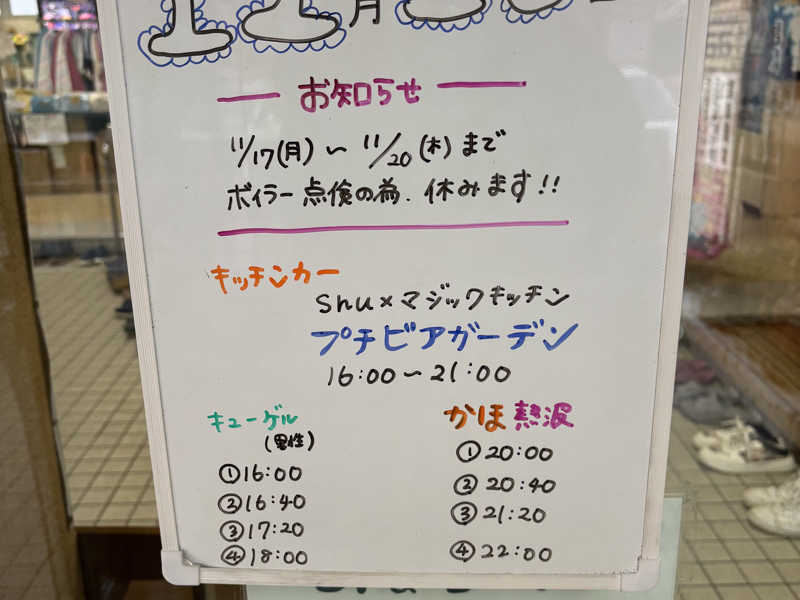 お知らせ
11/17(月)〜11/20(木)まで
ボイラー点検の為、休みます!!
キッチンカー
shu×マジックキッチン
プチビアガーデン
16:00〜21:00
キューゲル
(男性)
①16:00
②16:40
③17:20
④18:00
かほ熱波
①20:00
②20:40
③21:20
④22:00